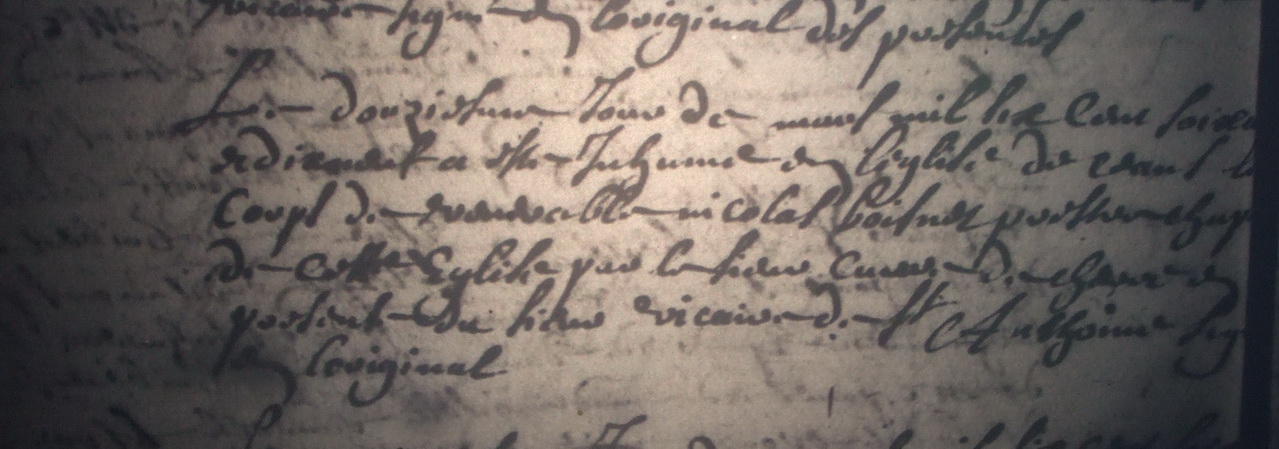 signé en loriginal des presentes
Le douziesme Jour de mars mil six Cent soixa
a este Inhumé en leglise de ceans le
Corps de venerable nicolas boisnet prestre chap
de cette Eglise par le sieur Cure de en
presence du sieur vicaire de St Anthoine sig
en loriginal